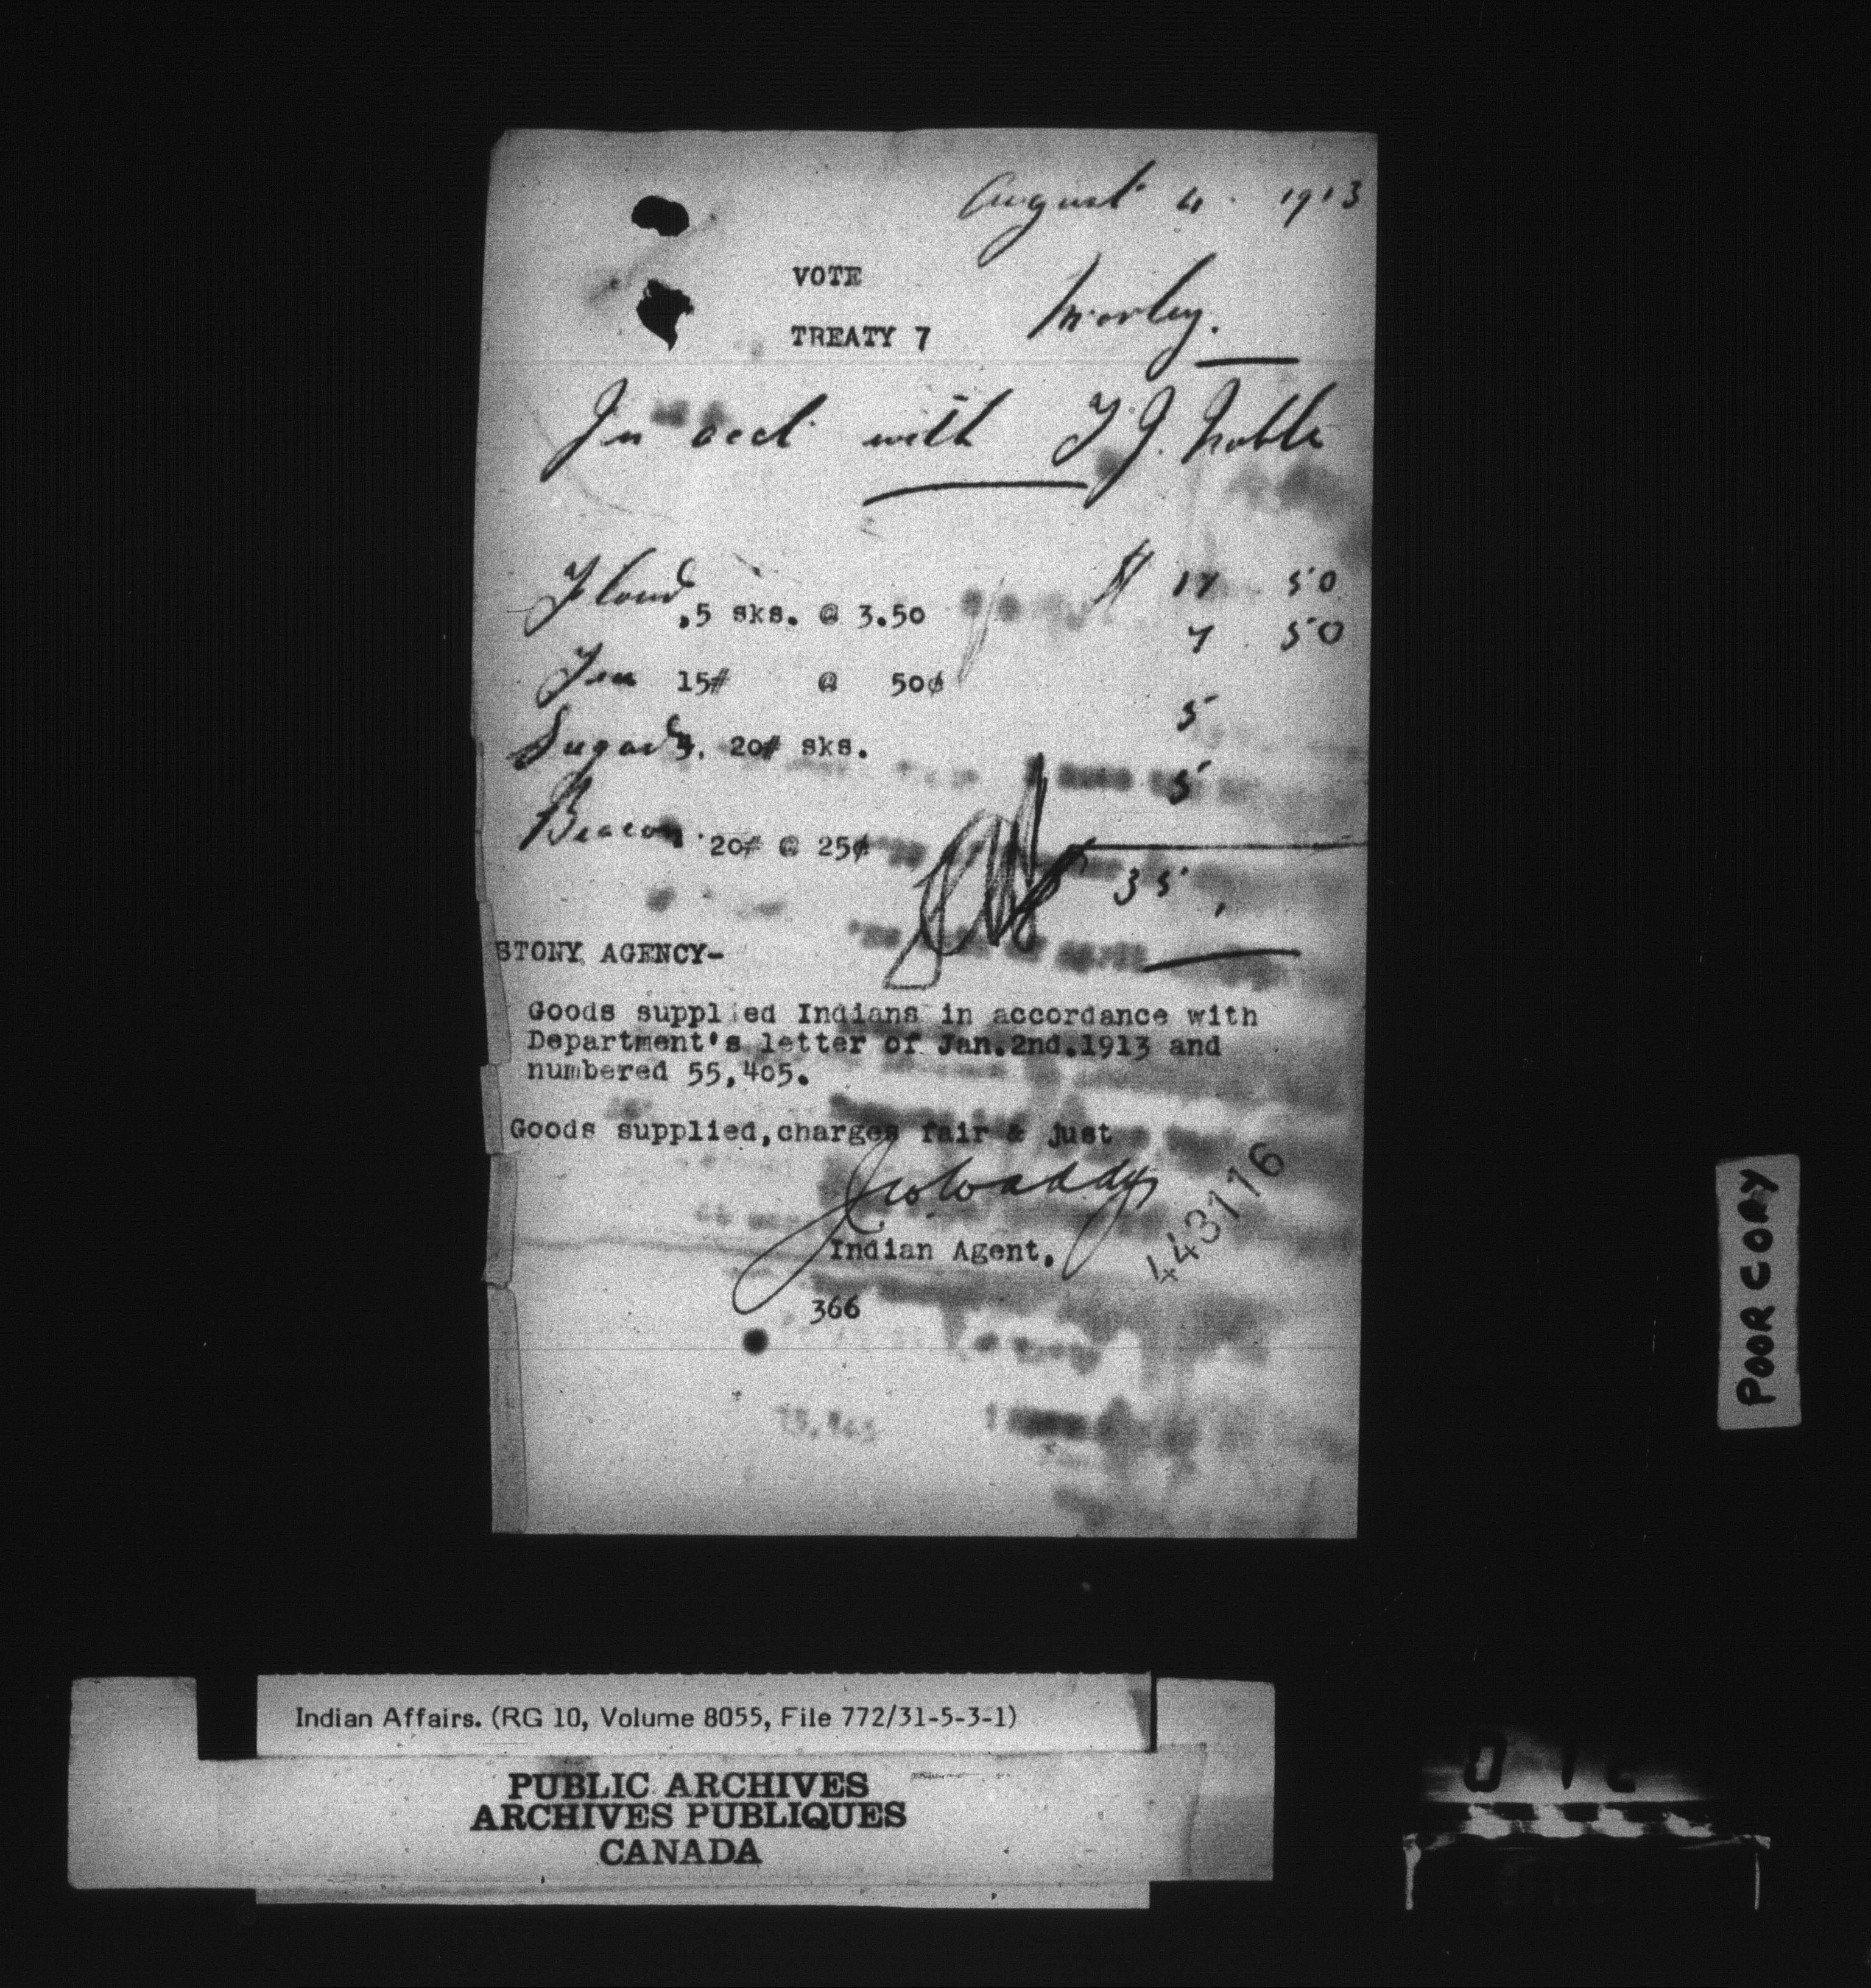 August 4. 1913
VOTE
TREATY 7
Morley.
In acct with T J. Noble
Flour ,5 sks. @ 3.50 $ 17 50
Tea 15# @ 50¢ 7 50
Sugar 3. 20# sks. 5
Beacon 20# @ 25¢ 5
35
STONY AGENCY-
Goods supplied Indians in accordance with
Department's letter of Jan.2nd.1913 and
numbered 55,405.
Goods supplied,charges fair & just
JWWaddy
Indian Agent,
443116
366
POOR COPY
Indian Affairs. (RG 10, Volume 8055, File 772/31-5-3-1)
PUBLIC ARCHIVES
ARCHIVES PUBLIQUES
CANADA